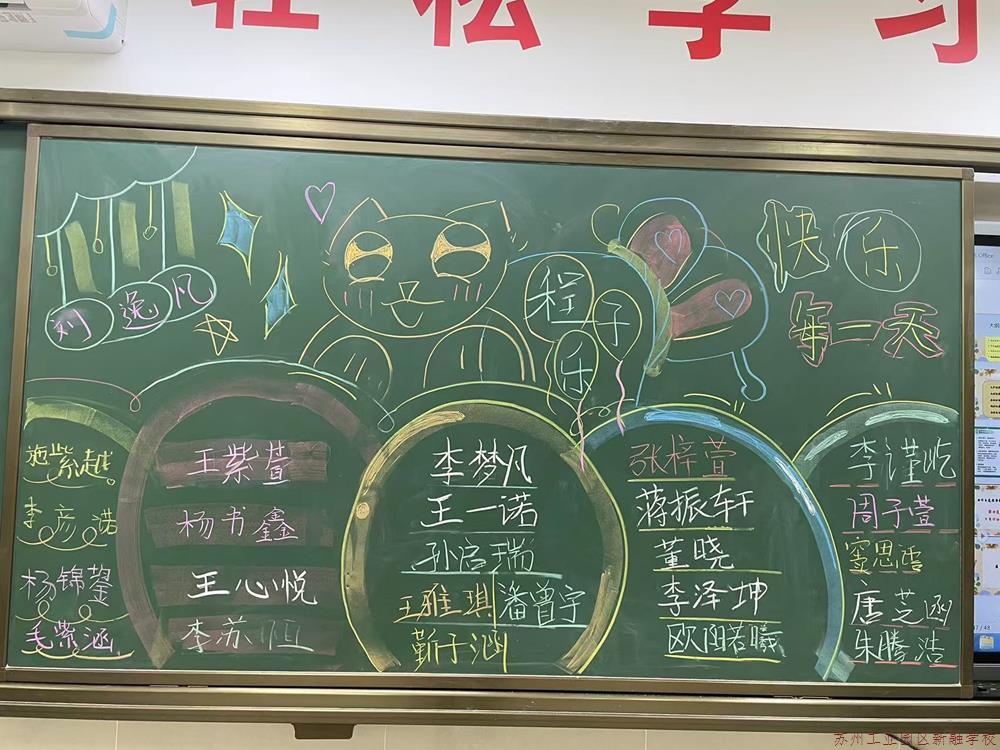 轻松学习
快乐
每一天
刘逸凡
程子乐
施紫越
李彦诺
杨锦鋆
毛紫涵
王紫萱
杨书鑫
王心悦
李苏恒
李梦凡
王一诺
孙启瑞
王雅琪 潘曾宇
靳子涵
张梓萱
蒋振轩
董晓
李泽坤
欧阳若曦
李谨屹
周子萱
窦思涵
唐芝涵
朱腾浩
苏州工业园区新融学校